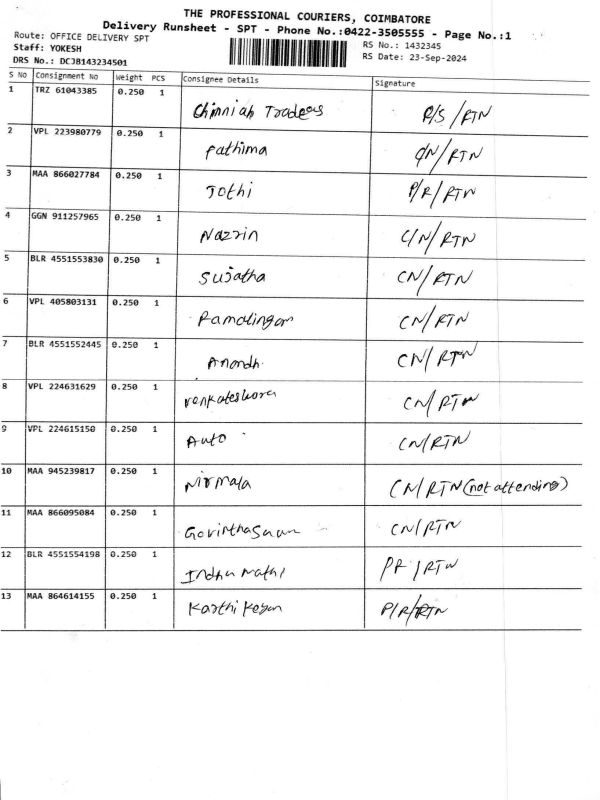 THE PROFESSIONAL COURIERS, COIMBATORE
Delivery Runsheet - SPT - Phone No.:0422-3505555 - Page No.:1
Route: OFFICE DELIVERY SPT
RS No.: 1432345
Staff: YOKESH
RS Date: 23-Sep-2024
DRS No.: DCJB143234501
S No Consignment No Weight PCS Consignee Details Signature
1 TRZ 61043385 0.250 1 Chinniah Traders P/S/RTN
2 VPL 223980779 0.250 1 Fathima C/N/RTN
3 MAA 866027784 0.250 1 Jothi P/R/RTN
4 GGN 911257965 0.250 1 Nazrin C/N/RTN
5 BLR 4551553830 0.250 1 Sujatha CN/RTN
6 VPL 405803131 0.250 1 Ramalingam CN/RTN
7 BLR 4551552445 0.250 1 Anandh CN/RTN
8 VPL 224631629 0.250 1 Venkateshwara CN/RTN
9 VPL 224615150 0.250 1 Auto CN/RTN
10 MAA 945239817 0.250 1 Nirmala CN/RTN (not attending)
11 MAA 866095084 0.250 1 CN/RTN
12 BLR 4551554198 0.250 1 Indhu mathi PR/RTN
13 MAA 864614155 0.250 1 Karthi Keyan P/R/RTN